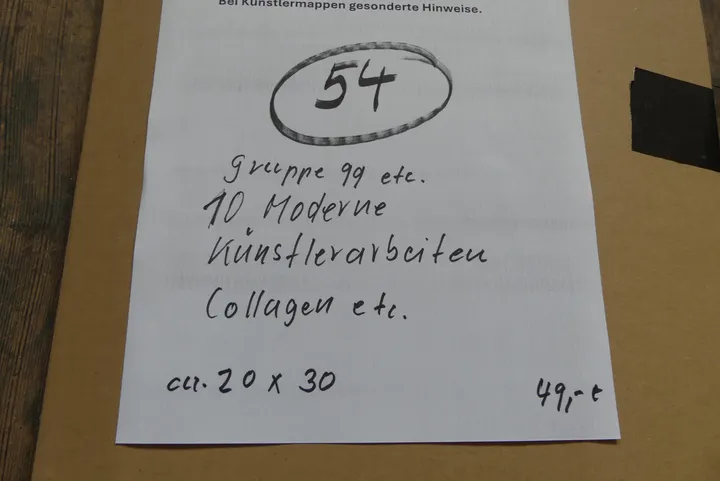 Bei Künstlermappen gesonderte Hinweise.
54
Gruppe 99 etc.
10 Moderne
Künstlerarbeiten
Collagen etc.
ca. 20 x 30
49,- €